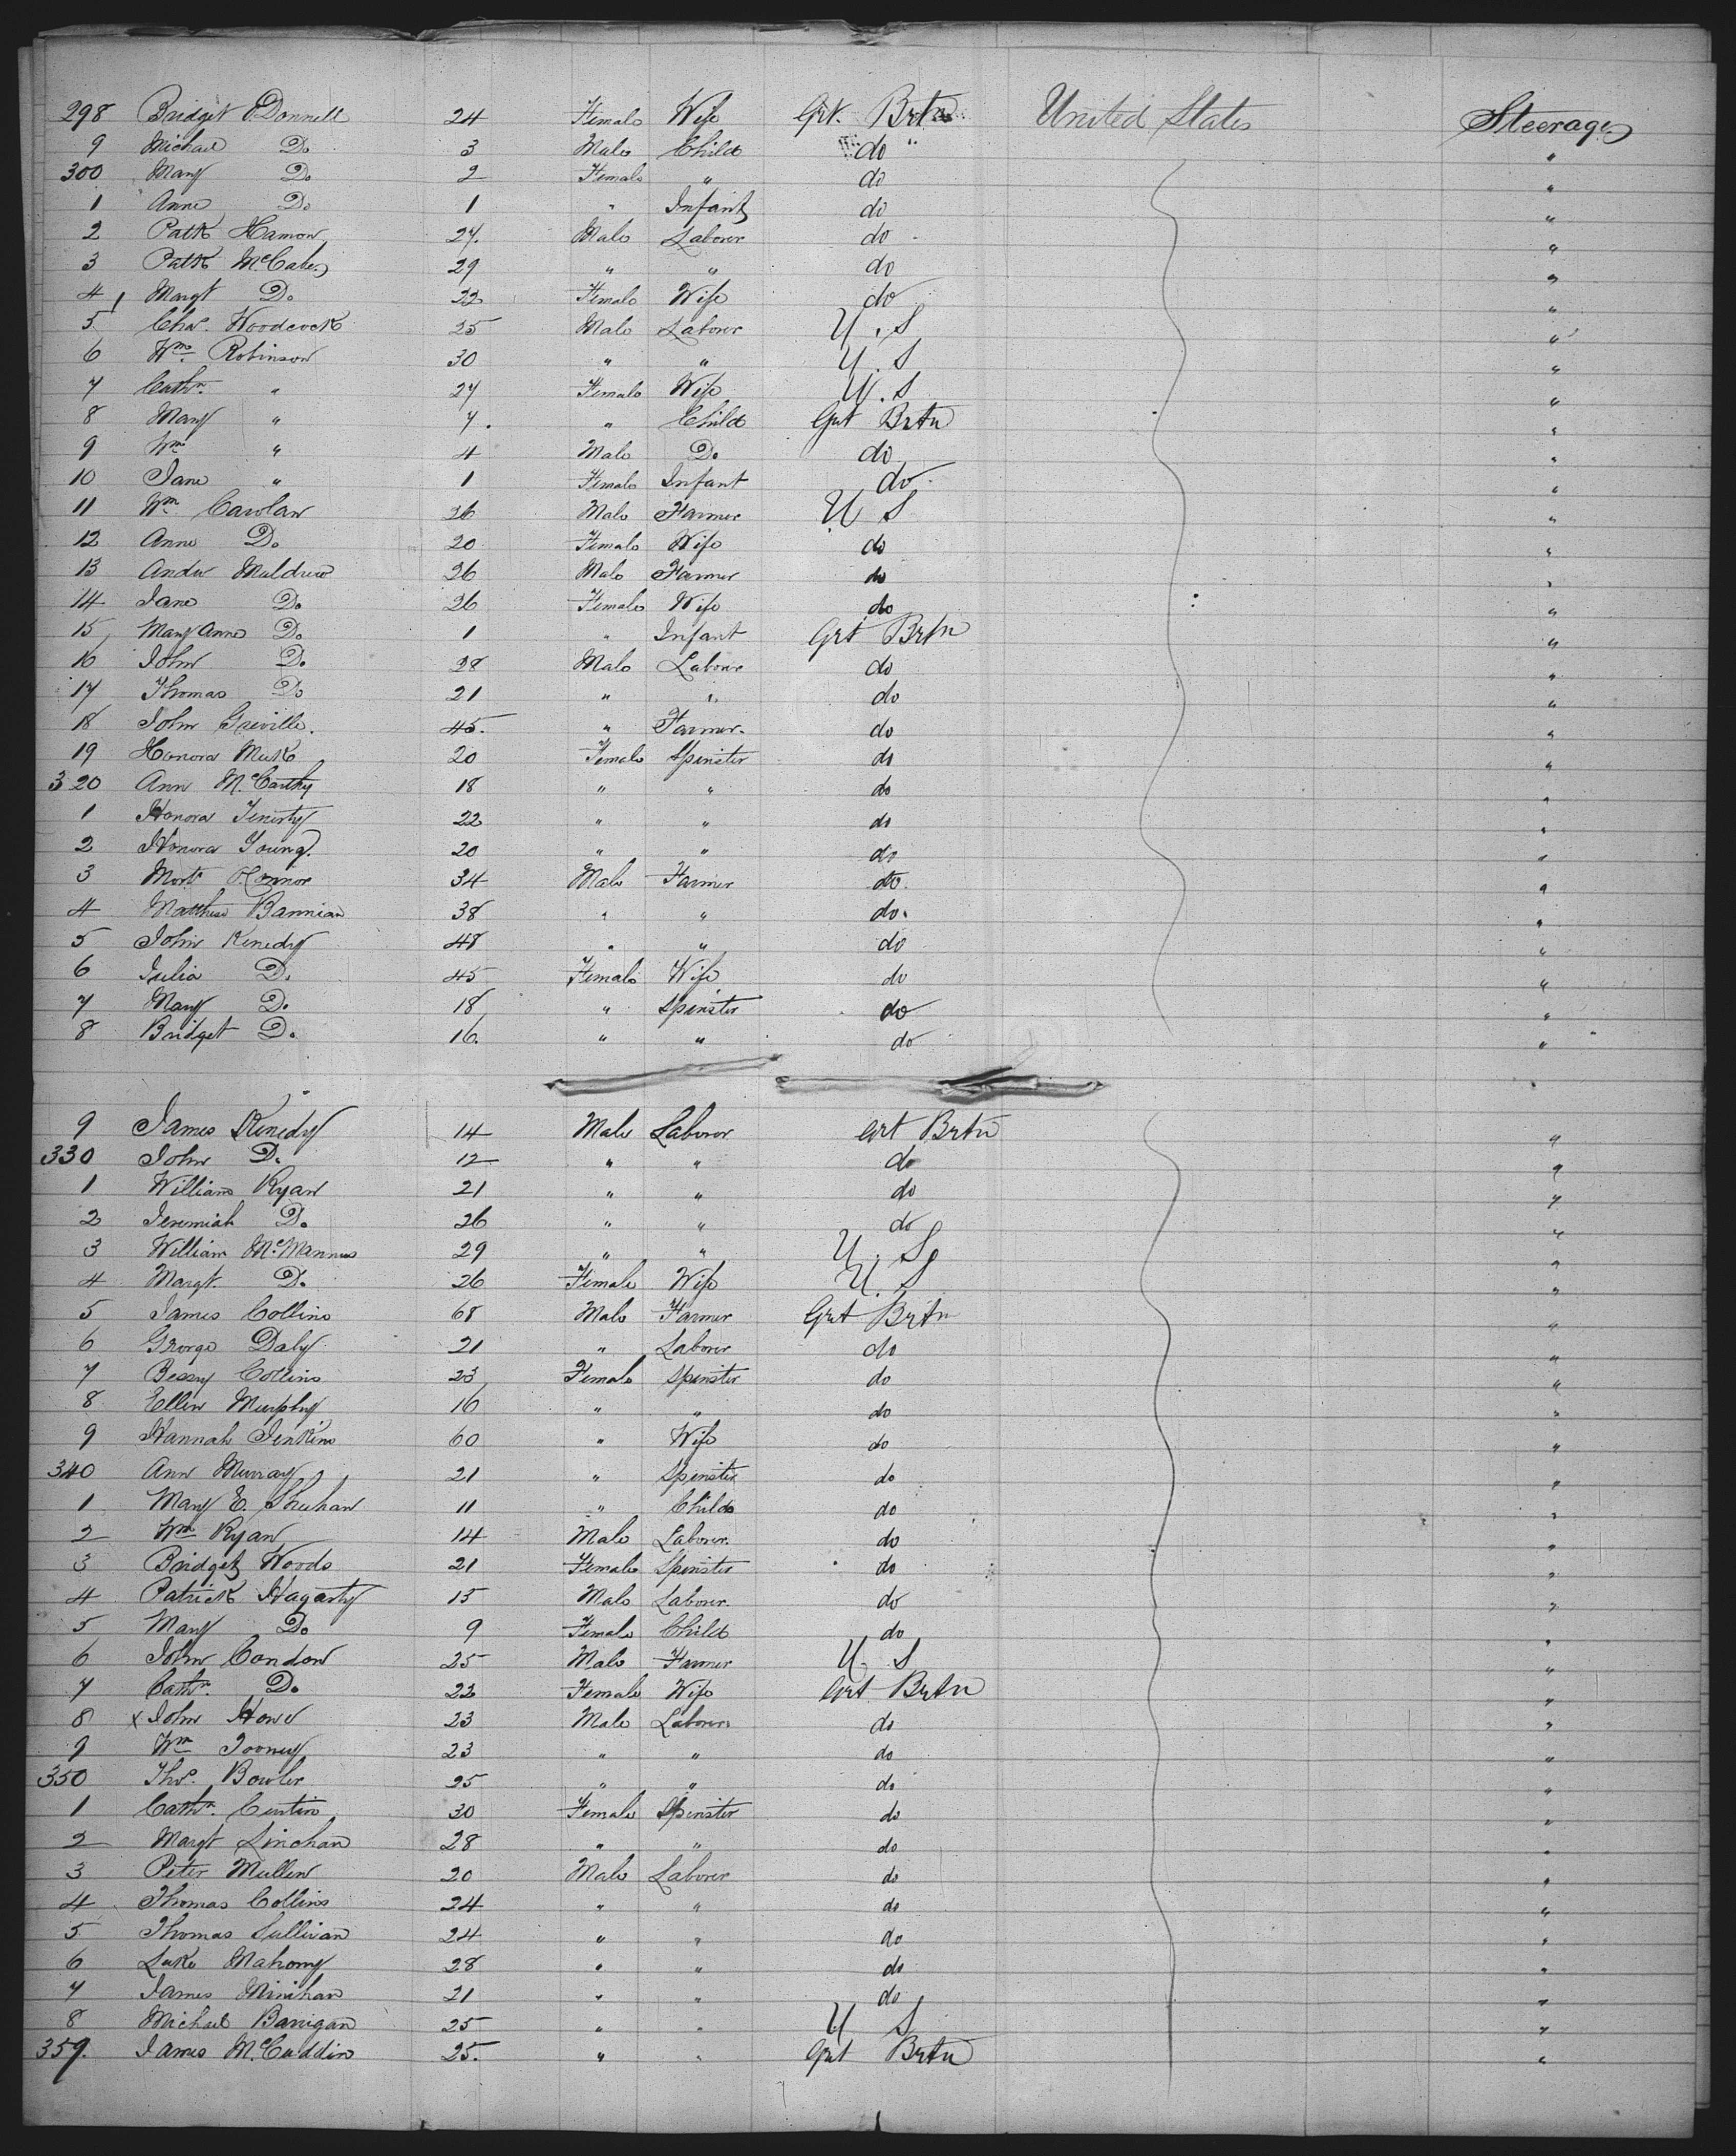 298 Bridget O'Donnell 24 Female Wife Grt. Brtn United States Steerage
9 Michael Do 3 Male Child do "
300 Mary Do 2 Female " do "
1 Anne Do 1 " Infant do "
2 Patk Hamon 27. Male Laborer do "
3 Patk McCabe 29 " " do "
4 Margt Do 22 Female Wife do "
5 Chas. Woodcock 25 Male Laborer U.S "
6 Wm Robinson 30 " " U.S "
7 Cathn " 27 Female Wife U.S "
8 Mary " 7. " Child Grt Brtn "
9 Wm " 4 Male Do do "
10 Jane " 1 Female Infant do "
11 Wm Carolan 26 Male Farmer U S "
12 Anne Do 20 Female Wife do "
13 Andw Muldrew 26 Male Farmer do "
14 Jane Do 26 Female Wife do "
15 Mary Anne Do 1 " Infant Grt Brtn "
16 John Do 28 Male Labour do "
17 Thomas Do 21 " " do "
18 John Greville. 45. " Farmer. do "
19 Honora 20 Female Spinster do "
320 Ann McCarthy 18 " " do "
1 Honora 22 " " do "
2 Honora Young. 20 " " do "
3 Mort O'Connor 34 Male Farmer do "
4 Matthew Bannian 38 " " do. "
5 John Kenedy 48 " " do "
6 Julia D. 45 Female Wife do "
7 Mary D. 18 " Spinster do "
8 Bridget D. 16. " " do "
9 James Kenedy 14 Male Laboror Grt Brtn "
330 John D. 12 " " do "
1 William Ryan 21 " " do "
2 Jeremiah D. 26 " " do "
3 William McMannus 29 " " U.S. "
4 Margt. D. 26 Female Wife U.S "
5 James Collins 68 Male Farmer Grt Brtn "
6 George Daly 21 " Laborer do "
7 Bessy Collins 23 Female Spinster do "
8 Ellen Murphy 16 " " do "
9 Hannah Jenkins 60 " Wife do "
340 Ann Murray 21 " Spinster do "
1 Mary E. Shuhan 11 " Child do "
2 Wm Ryan 14 Male Laborer. do "
3 Bridget Woods 21 Female Spinster do "
4 Patrick Hagarty 15 Male Laborer. do "
5 Mary Do 9 Female Child do "
6 John Condon 25 Male Farmer U. S "
7 Cathn. Do 22 Female Wife Grt Brtn "
8 x John Howe 23 Male Laborer do "
9 Wm Tooney 23 " " do "
350 Thos. Bowler 25 " " do "
1 Cathn. Curtin 30 Female Spinster do "
2 Margt Linehan 28 " " do "
3 Peter Mullen 20 Male Laborer do "
4 Thomas Collins 24 " " do "
5 Thomas Sullivan 24 " " do "
6 Luke Mahony 28 " " do "
7 James Minihan 21 " " do "
8 Michael Barrigan 25 " " U S "
359. James McCuddin 25. " " Grt Brtn "